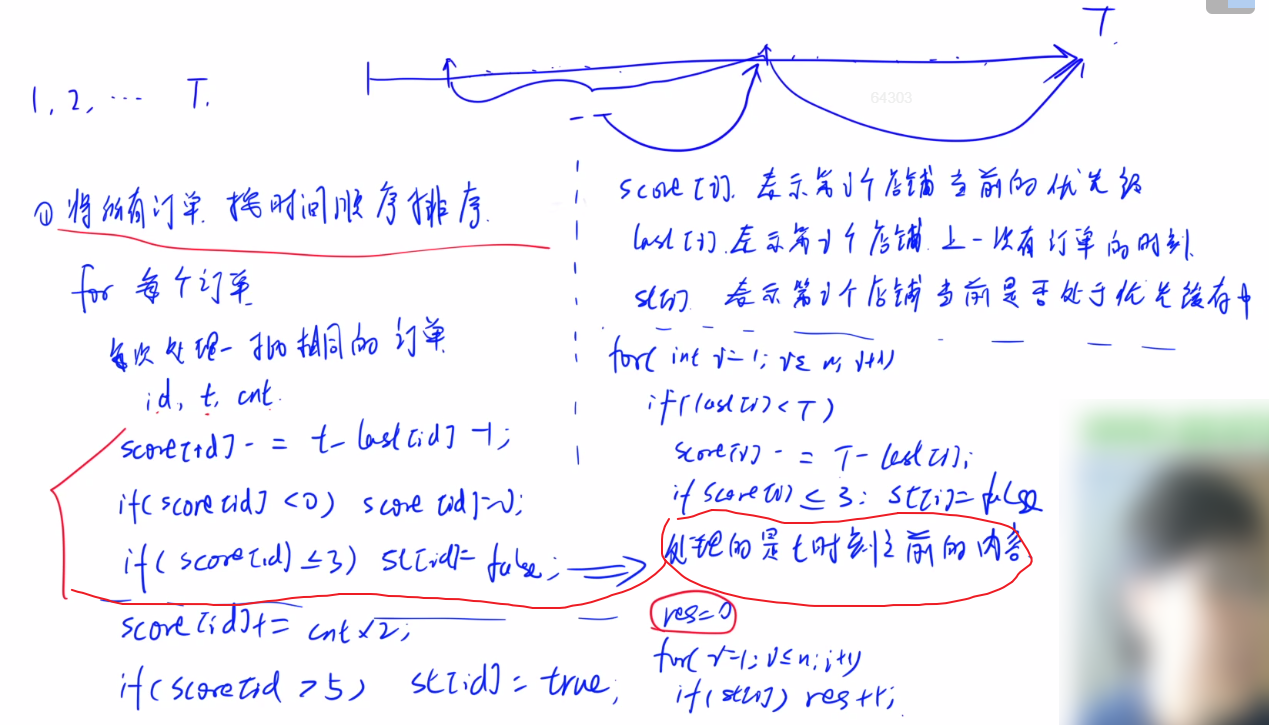 T.
1, 2, … T.
64303
① 将所有订单 按时间顺序排序.
for 每个订单
每次处理一批相同的订单
id, t, cnt.
score[id] -= t - last[id] - 1;
if(score[id] <0) score[id]=0;
if(score[id] ≤3) st[id]= false;
score[id]+= cnt×2;
if(score[id >5) st[id] = true;
score[i]. 表示第i个店铺当前的优先级
last[i] 表示第i个店铺 上一次有订单的时刻
st[i] 表示第i个店铺当前是否处于优先缓存中
for( int i=1; i≤ n; i++)
if(last[i] < T)
score[i] -= T - last[i];
if score[i] ≤ 3: st[i]= false
处理的是t时刻之前的内容
res=0
for( i=1; i≤n; i++)
if(st[i]) res++;